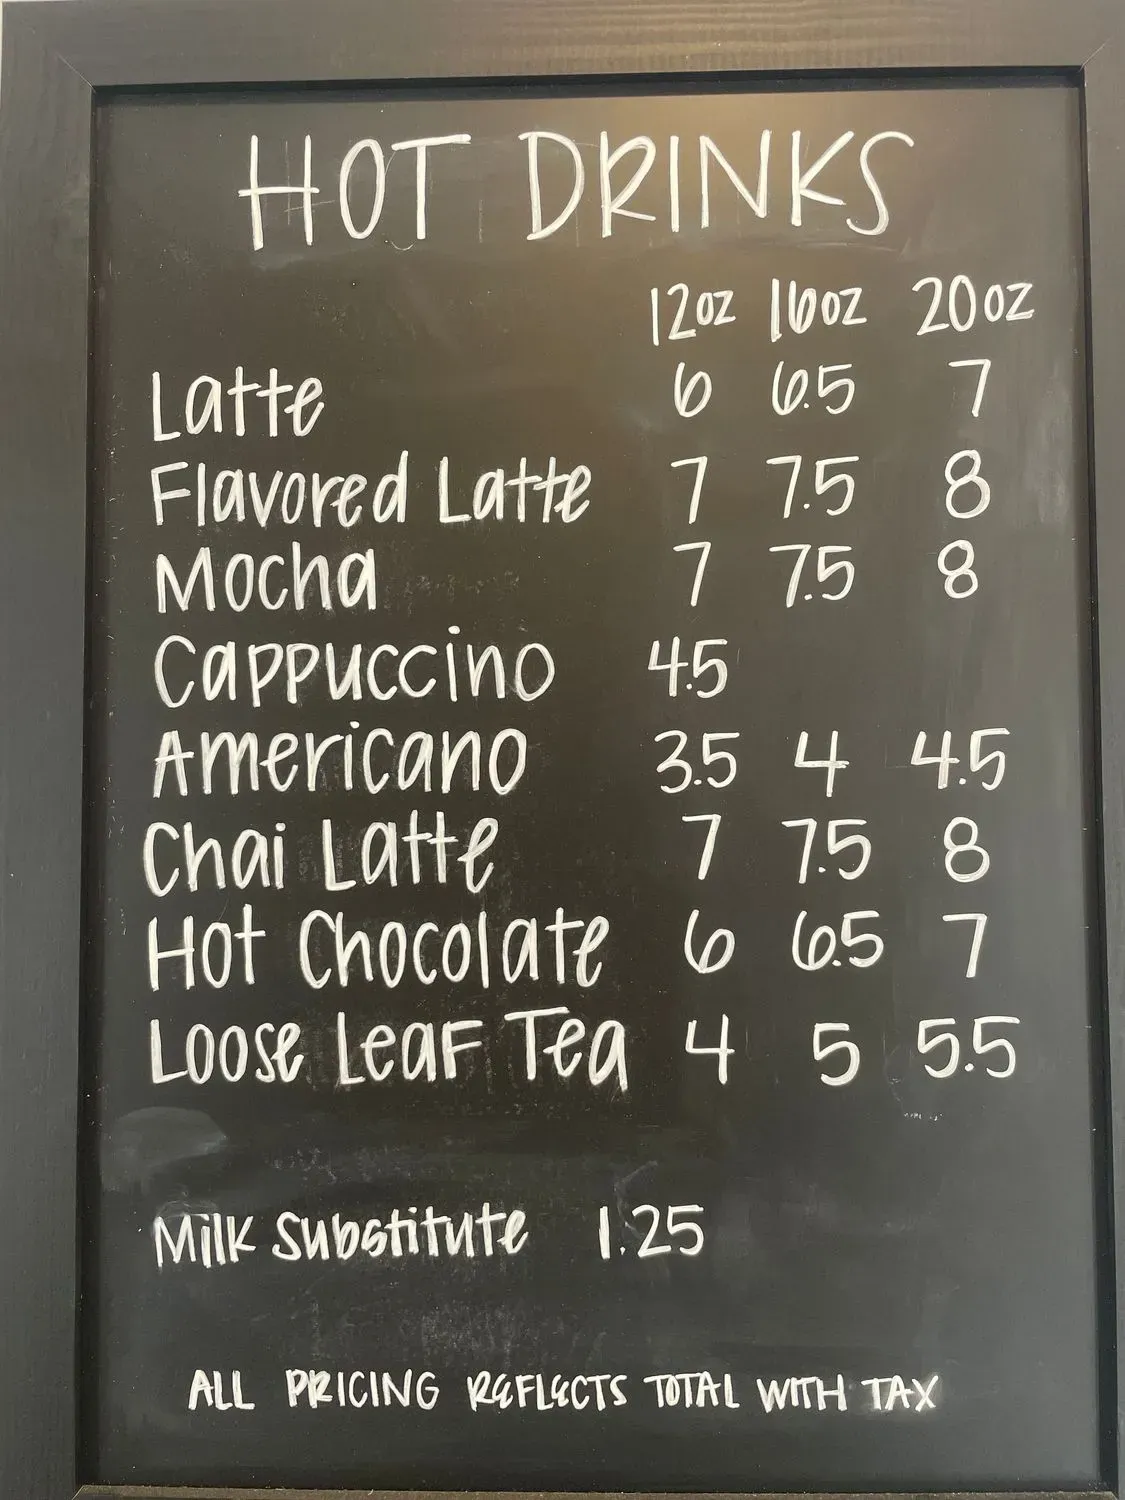 HOT DRINKS
12oz 16oz 20oz
Latte 6 6.5 7
Flavored Latte 7 7.5 8
Mocha 7 7.5 8
Cappuccino 4.5
Americano 3.5 4 4.5
Chai Latte 7 7.5 8
Hot Chocolate 6 6.5 7
Loose Leaf Tea 4 5 5.5
Milk Substitute 1.25
ALL PRICING REFLECTS TOTAL WITH TAX